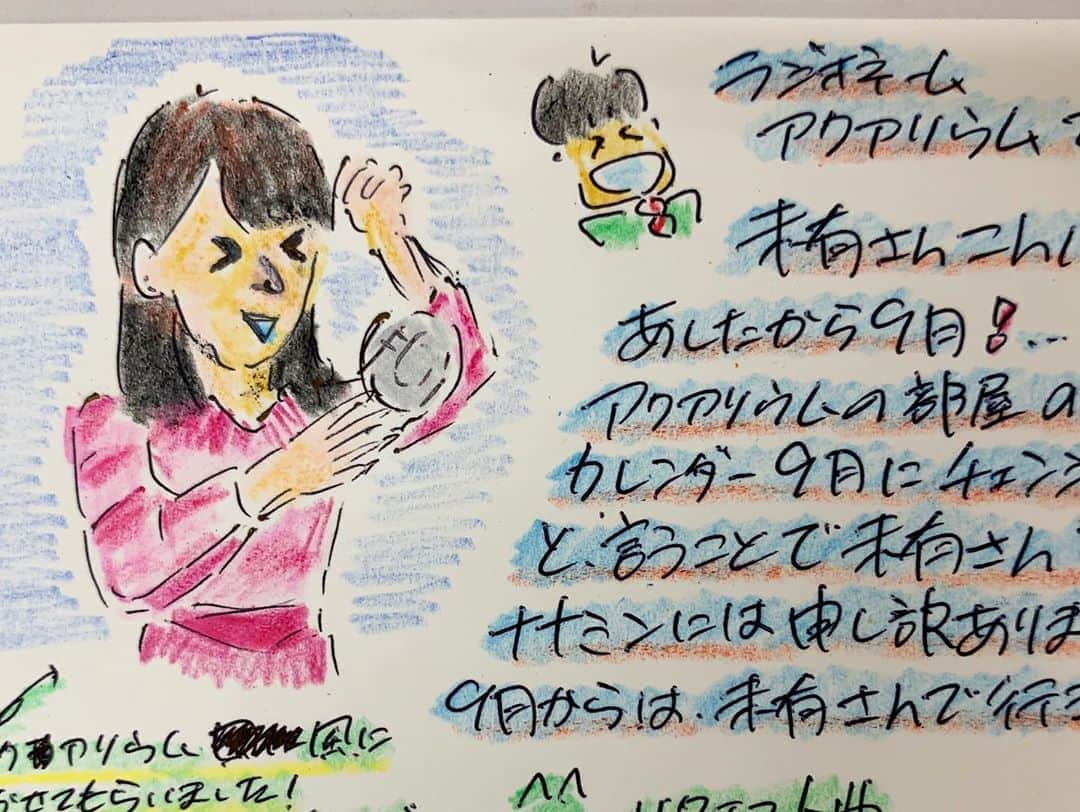 ラジオネーム
アクアリウムで
未有さんこんに
あしたから9月!...
アクアリウムの部屋の
カレンダー9月にチェンジ
と、言うことで未有さん
ナナミンには申し訳ありま
9月からは、未有さんで行き
アクアリウム 風に
かせてもらいました!